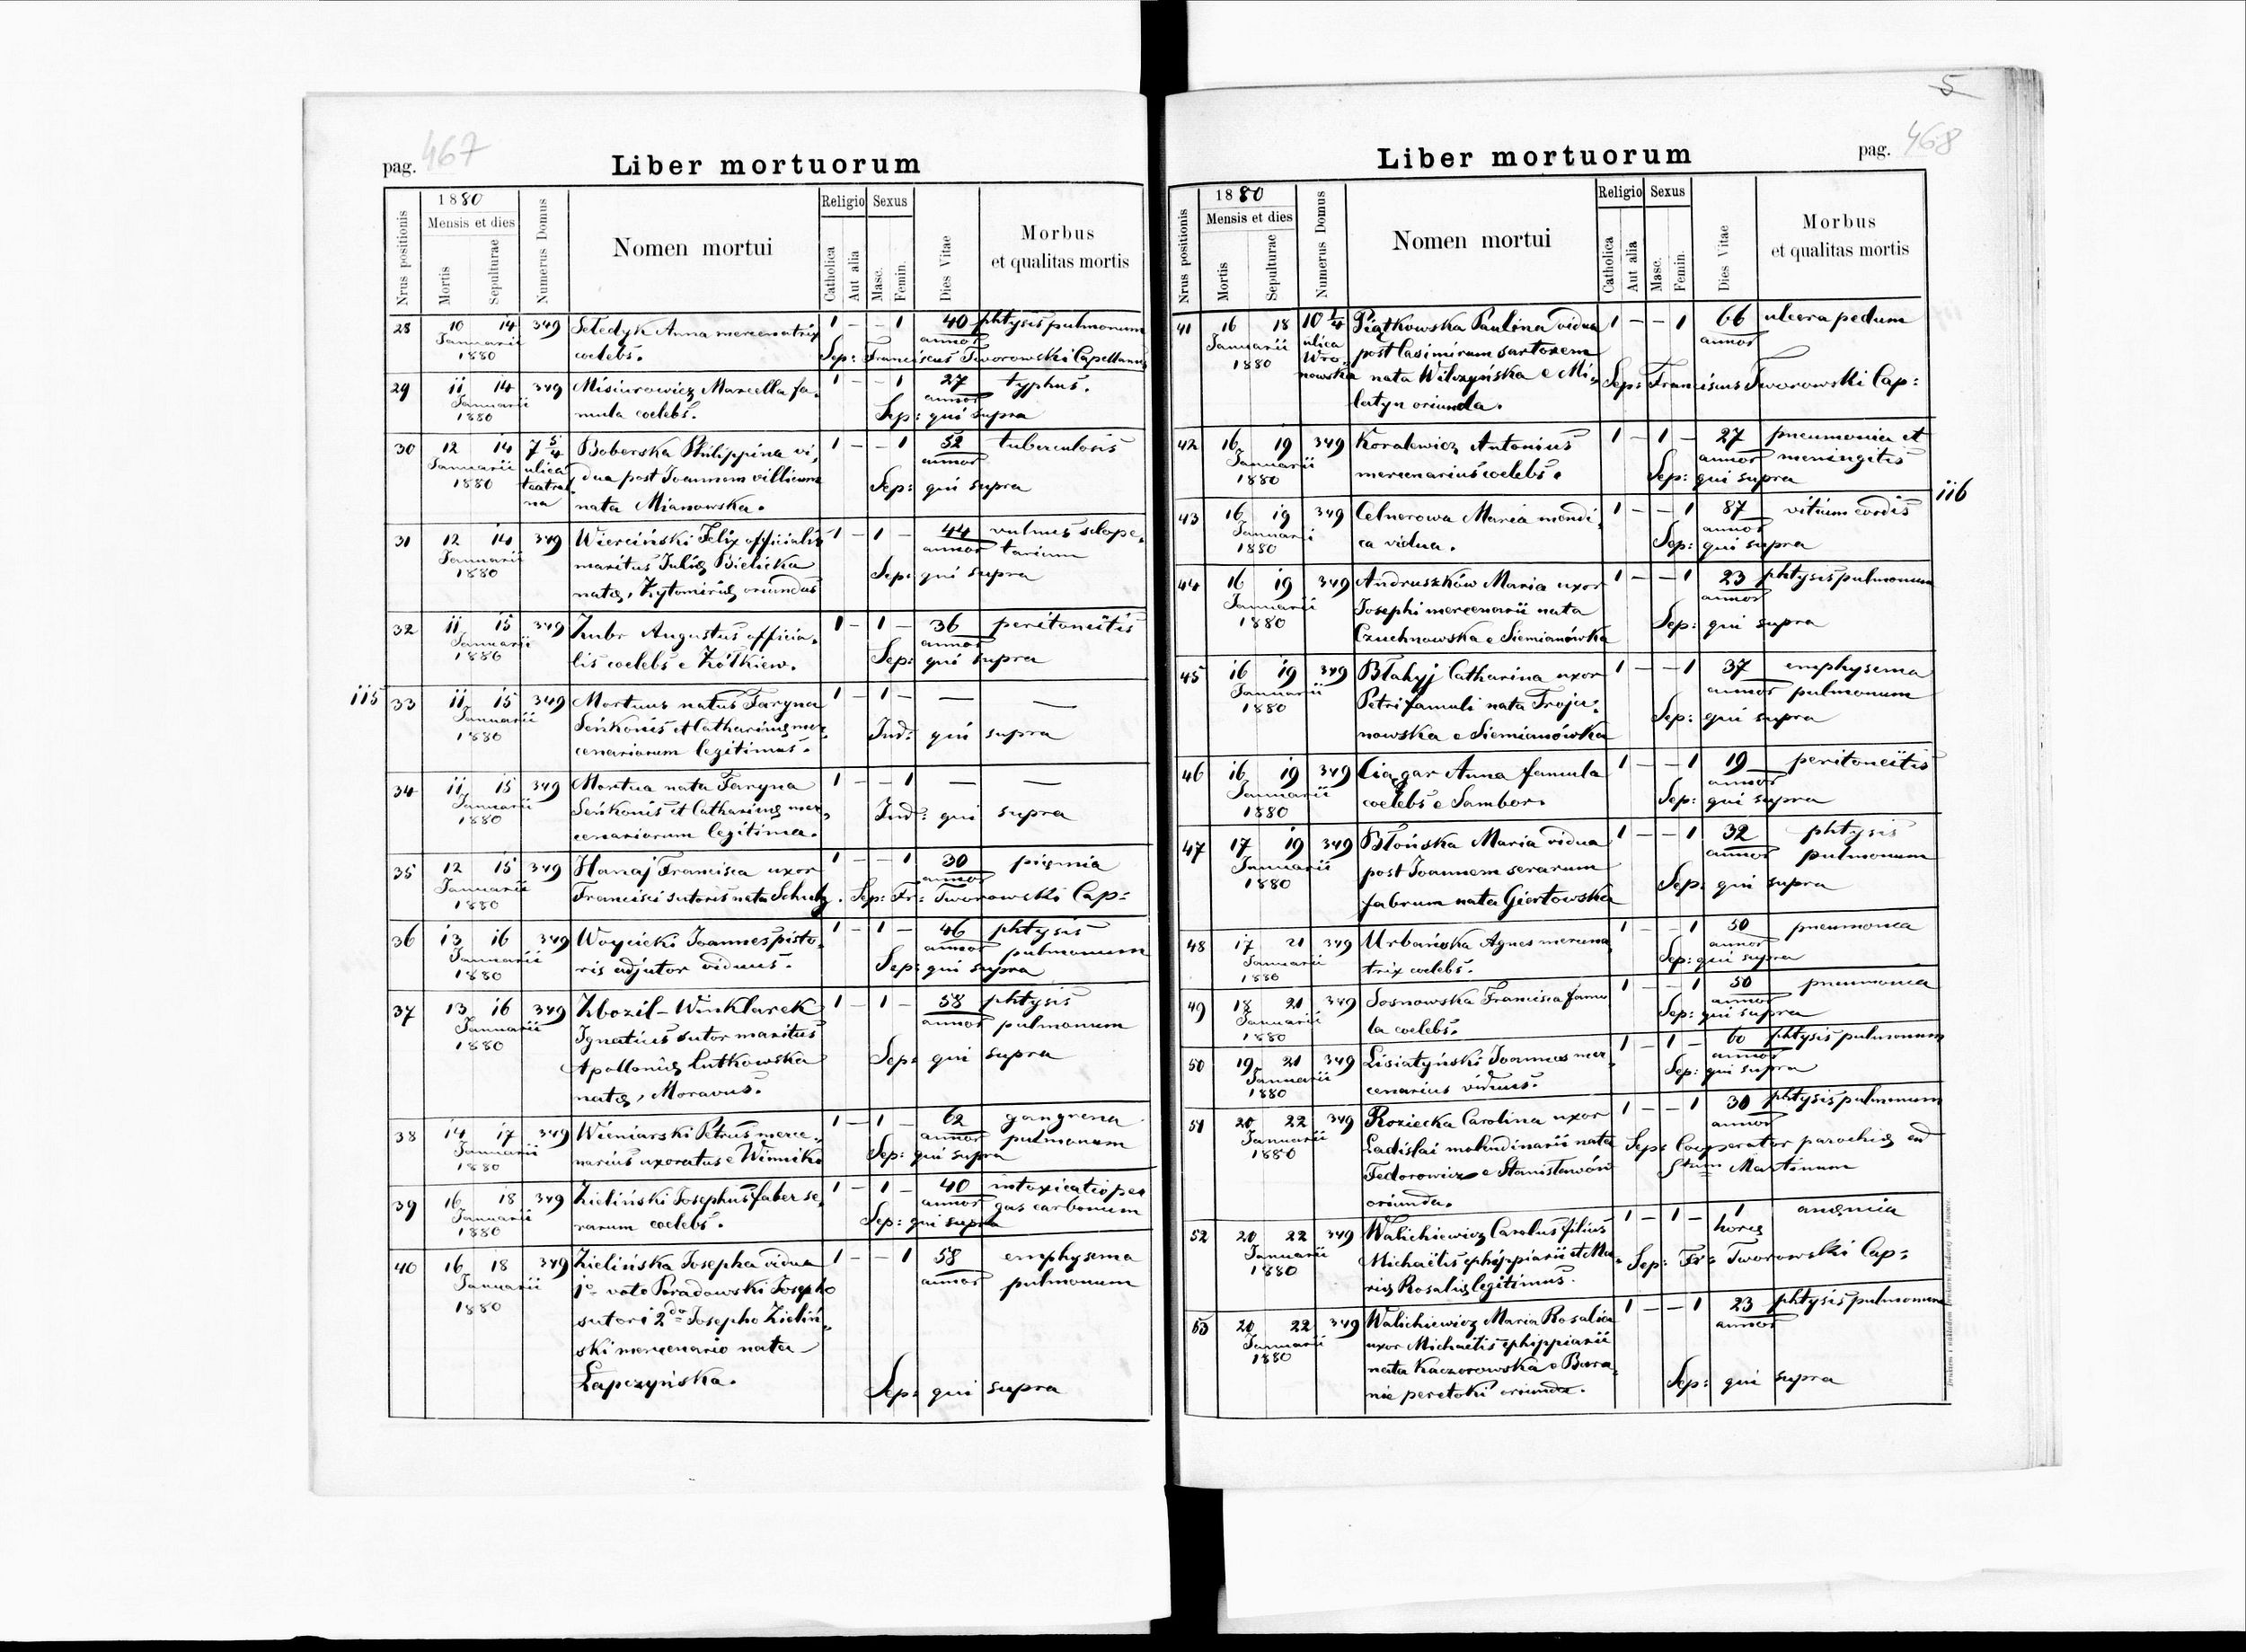 pag. 467
Liber mortuorum
Nrus positionis
1880
Mensis et dies
Mortis
Sepulturae
Numerus Domus
Nomen mortui
Religio
Catholica
Aut alia
Sexus
Masc.
Femin.
Dies Vitae
Morbus
et qualitas mortis
28 10 14 349 Anna mercenatrix 1 – – 1 40 phtysis pulmonum
Januarii annor
1880 coelebs. Sep: Franciscus Tworowski Capellanus
29 11 14 349 Misiurowicz Marcella fa- 1 – – 1 27 typhus.
Januarii annor
1880 mula coelebs. Sep: qui supra
30 12 14 7 5/4 Boberska Philippina vi- 1 – – 1 52 tuberculosis
Januarii ulica dua post Joannem villicum annor
1880 teatral Sep: qui supra
na nata Mianowska.
31 12 14 349 Wierciński Felix officialis 1 – 1 – 44 vulnus sclope-
Januarii maritus Julię Bielicka annor tarium
1880 natę, Żytomirię oriundus Sep: qui supra
32 11 15 349 Zubr Augustus officia- 1 – 1 – 36 peritoneitis
Januarii annor
1880 lis coelebs e Żółkiew. Sep: qui supra
115
33 11 15 349 Mortuus natus Faryna 1 – 1 – — —
Januarii Seńkonis et Catharinę mer-
1880 cenariorum legitimus. Ind: qui supra
34 11 15 349 Mortua nata Faryna 1 – – 1 — —
Januarii Seńkonis et Catharinę mer-
1880 cenariorum legitima. Ind: qui supra
35 12 15 349 Hanaj Francisca uxor 1 – – 1 30 pięmia
Januarii annor
1880 Francisci sutoris nata Schulz. Sep: Fr: Tworowski Cap:
36 13 16 349 Woycicki Joannes pisto- 1 – 1 – 46 phtysis
Januarii annor pulmonum
1880 ris adjutor viduus. Sep: qui supra
37 13 16 349 Zbozil-Winklarek 1 – 1 – 58 phtysis
Januarii Ignatius sutor maritus annor pulmonum
1880 Apollonię Lutkowska Sep: qui supra
natę, Moravus.
38 14 17 349 Wieniarski Petrus merce- 1 – 1 – 62 gangrena
Januarii annor pulmonum
1880 narius uxoratus e Winniki Sep: qui supra
39 16 18 349 Zieliński Josephus faber se- 1 – 1 – 40 intoxicatio per
Januarii annor gas carbonum
1880 rarum coelebs. Sep: qui supra
40 16 18 349 Zielińska Josepha vidua 1 – – 1 58 emphysema
Januarii 1o voto Paradowski Josepho annor pulmonum
1880 sutori 2do Josepho Zieliń-
ski mercenario nata
Łapczyńska. Sep: qui supra
5
Liber mortuorum
pag. 468
Nrus positionis
1880
Mensis et dies
Mortis
Sepulturae
Numerus Domus
Nomen mortui
Religio
Catholica
Aut alia
Sexus
Masc.
Femin.
Dies Vitae
Morbus
et qualitas mortis
41 16 18 10 1/4 Piątkowska Paulina vidua 1 – – 1 66 ulcera pedum
Januarii ulica post Casimirum sartorem annor
1880 Wro-
nowska nata Wilczyńska e Mi- Sep: Franciscus Tworowski Cap:
latyn oriunda.
42 16 19 349 Koralewicz Antonius 1 – 1 – 27 pneumonia et
Januarii annor meningitis
1880 mercenarius coelebs. Sep: qui supra
116
43 16 19 349 Celnerowa Maria mendi- 1 – – 1 87 vitium cordis
Januarii annor
1880 ca vidua. Sep: qui supra
44 16 19 349 Andruszków Maria uxor 1 – – 1 23 phtysis pulmonum
Januarii Josephi mercenarii nata annor
1880 Czuchnowska e Siemianówka Sep: qui supra
45 16 19 349 Błahyj Catharina uxor 1 – – 1 37 emphysema
Januarii Petri famuli nata Troja- annor pulmonum
1880 nowska e Siemianówka Sep: qui supra
46 16 19 349 Ciągar Anna famula 1 – – 1 19 peritoneitis
Januarii annor
1880 coelebs e Sambor. Sep: qui supra
47 17 19 349 Błońska Maria vidua 1 – – 1 32 phtysis
Januarii post Joannem serarum annor pulmonum
1880 fabrum nata Giertowska Sep: qui supra
48 17 21 349 Urbańska Agnes mercena- 1 – – 1 50 pneumonia
Januarii annor
1880 trix coelebs. Sep: qui supra
49 18 21 349 Sosnowska Francisca famu- 1 – – 1 50 pneumonia
Januarii annor
1880 la coelebs. Sep: qui supra
50 19 21 349 Lisiatyński Joannes mer- 1 – 1 – 60 phtysis pulmonum
Januarii annor
1880 cenarius viduus. Sep: qui supra
51 20 22 349 Roziecka Carolina uxor 1 – – 1 30 phtysis pulmonum
Januarii annor
1880 Ladislai molendinarii nata Sep: Cooperator parochię ad
Fedorowicz e Stanisławów Stum Martinum
oriunda.
52 20 22 349 Walichiewicz Carolus filius 1 – 1 – 1 anęmia
Januarii horę
1880 Michaëlis ephippiarii et Ma- Sep: Fr: Tworowski Cap:
rię Rosalię legitimus.
53 20 22 349 Walichiewicz Maria Rosalia 1 – – 1 23 phtysis pulmonum
Januarii uxor Michaëlis ephippiarii annor
1880 nata Kaczorowska e Bara-
nie peretoki oriunda. Sep: qui supra